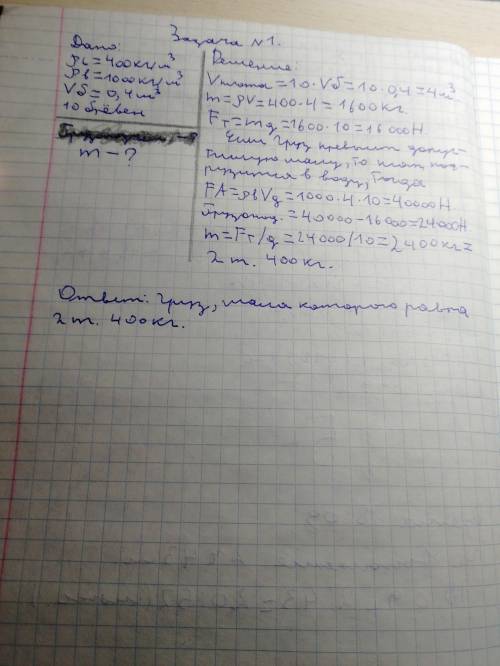 Задача №1.
Дано:
ρс = 400кг/м³
ρв = 1000кг/м³
Vб = 0,4м³
10 брёвен
m - ?
Решение:
Vплота = 10 · Vб = 10 · 0,4 = 4м³
m = ρV = 400 · 4 = 1600кг.
Fт = mg = 1600 · 10 = 16000Н
Если груз превысит допус-
тимую массу, то плот пог-
рузится в воду, тогда
FA = ρвVg = 1000 · 4 · 10 = 40000Н
Грузопод. = 40000 - 16000 = 24000Н
m = Fт/g = 24000/10 = 2400кг =
2 т. 400кг.
Ответ: груз, масса которого равна
2 т. 400кг.